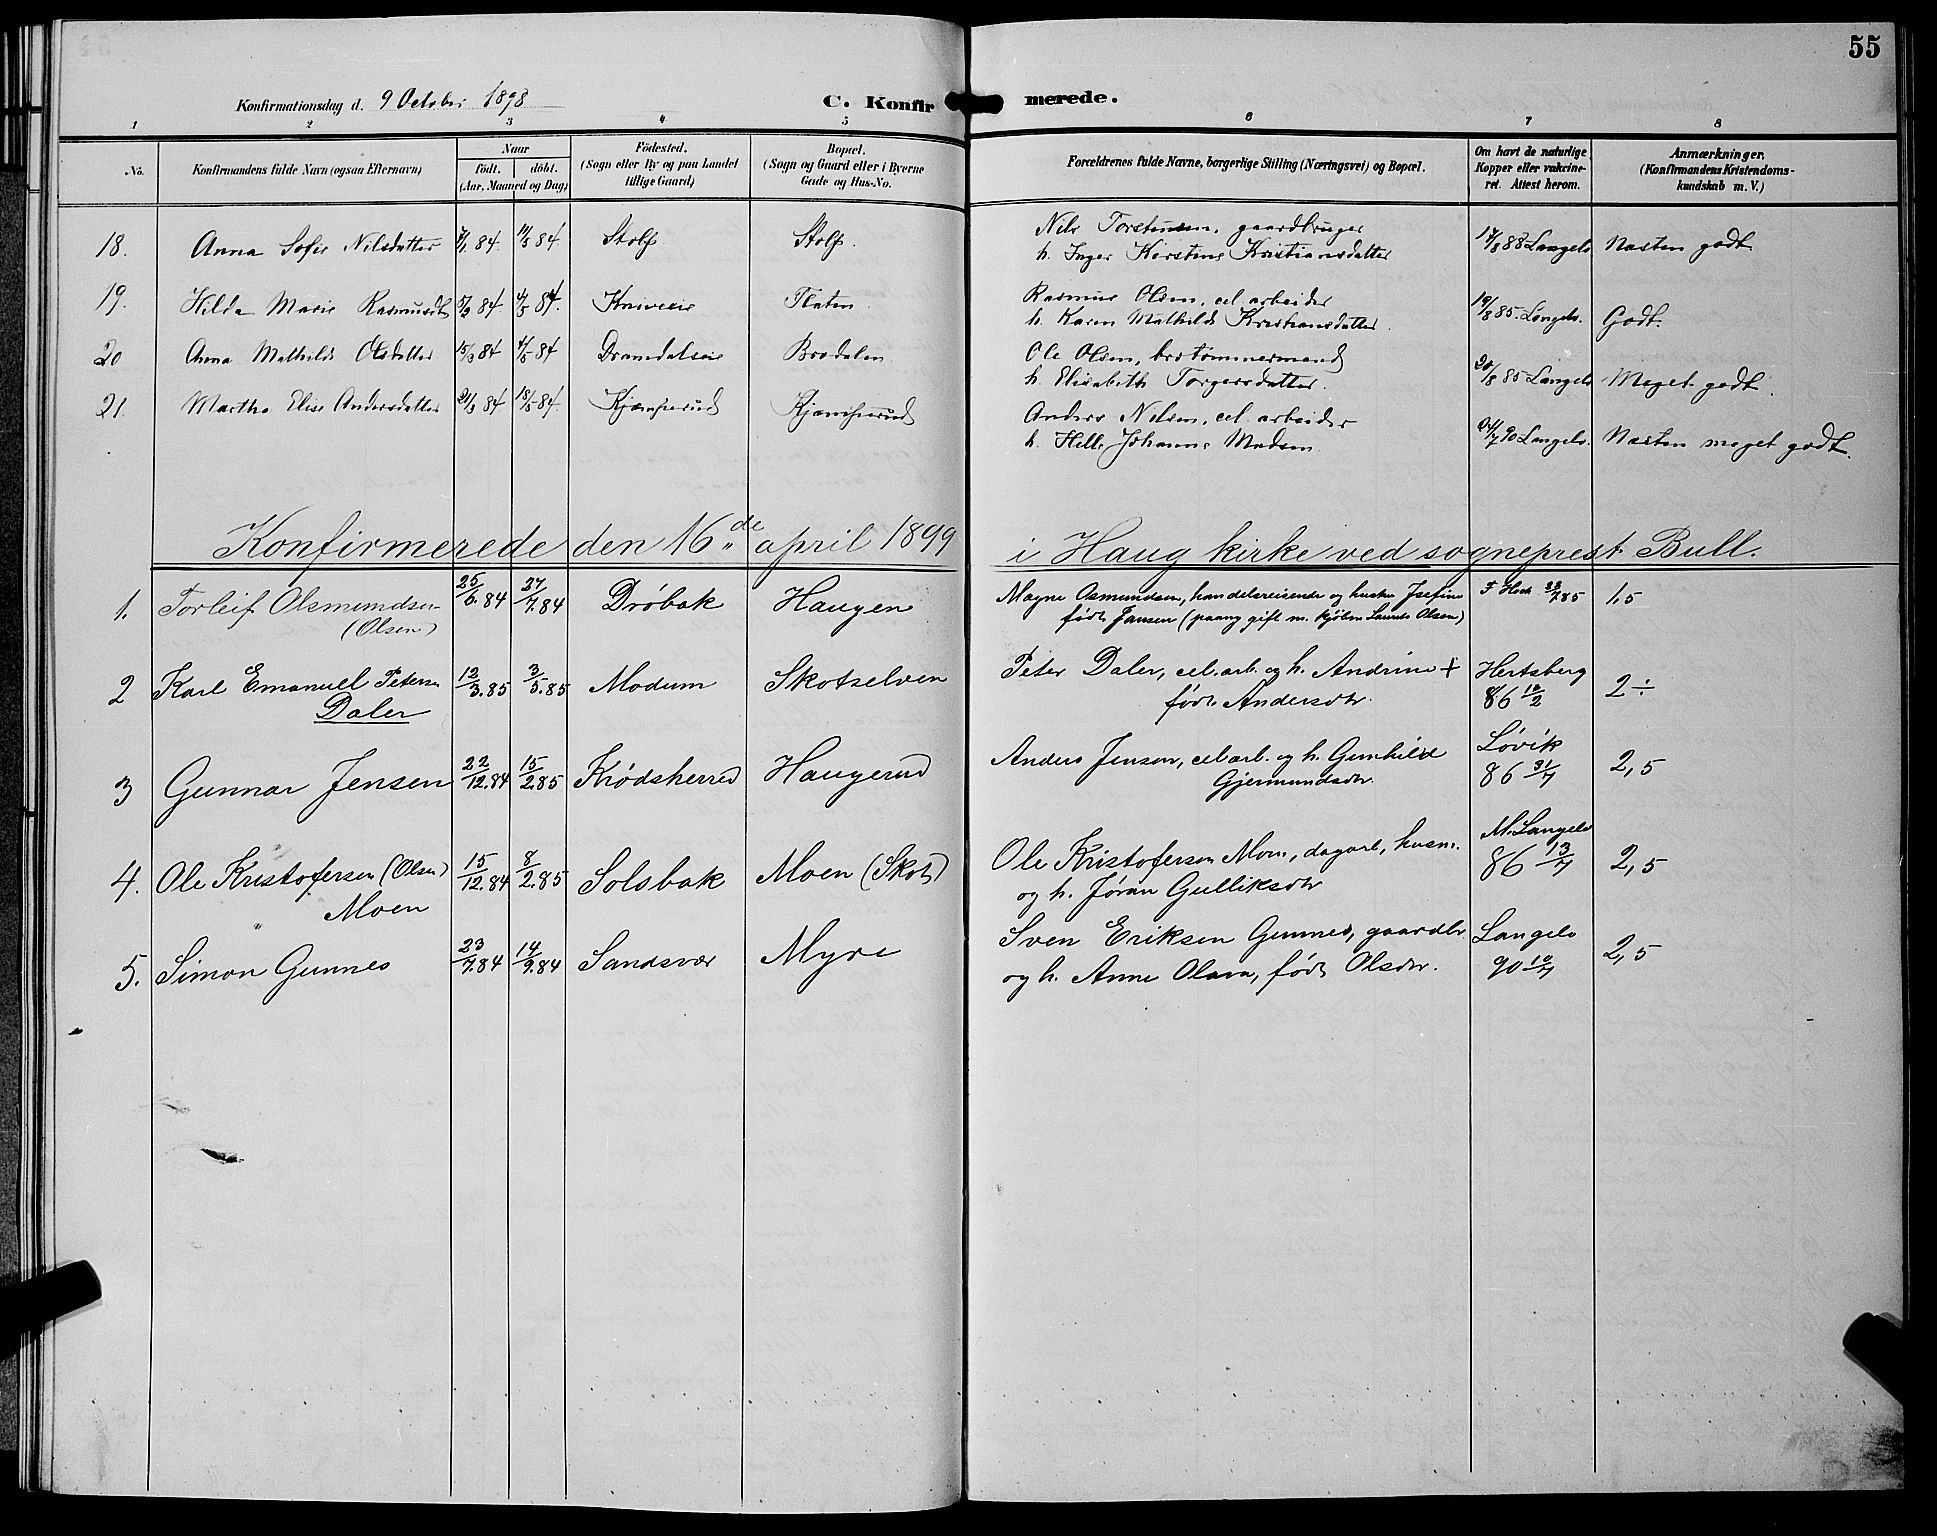 55
Konfirmationsdag d. 9 October 1898
C. Konfir merede.
1 2 3 4 5 6 7 8
No.
Konfirmandens fulde Navn (ogsaa Efternavn)
Naar
födt. döbt.
(Aar, Maaned og Dag)
Födested.
(Sogn eller By og paa Landet
tillige Gaard)
Bopæl.
(Sogn og Gaard eller i Byerne
Gade og Hus-No.
Forældrenes fulde Navne, borgerlige Stilling (Næringsvei) og Bopæl.
Om havt de naturlige
Kopper eller vakcine-
ret. Attest herom.
Anmærkninger.
(Konfirmandens Kristendoms-
kundskab m. V.)
18. Anna Sofie Nilsdatter 7/1 84. 11/5 84 Stolp. Stolp. Nils Torstensen, gaardbruger 17/8 88 Langelv Næsten godt
h. Inger Kirstine Kristiansdatter
19. Hilda Marie Rasmusdt 5/2 84. 4/5 84. Kniveeie Flaten Rasmus Olsen, cel. arbeider 19/8 85. Langelv. Godt.
h. Karen Mathilde Kristiansdatter.
20 Anna Mathilde Olsdatter 15/3 84 4/5 84 Dramdalseie Brodalen Ole Olsen, tømmermand 20/8 85 Langelv Meget godt.
h. Elisabeth Torgersdatter.
21. Martha Elise Andersdatter 21/3 84 18/5 84. Kjæmperud Kjæmperud Anders Nilsen, cel. arbeider 7 90 Langelv. Næsten meget godt.
h. Helle Johanne Madsen
Konfirmerede den 16de april 1899 i Haug kirke ved sogneprest Bull.
1. Torleif Osmundsen 25/6.84 27/7.84 Drøbak Haugen Magne Osmundsen, handelsreisende og hustru Josefine F Hoch 23/7.85 1,5
(Olsen) født Jansen (paany gift m. kjøbm Olsen)
2 Karl Emanuel Petersen 12/3.85 3/5.85 Modum Skotselven Peter Daler, cel.arb. og h. Andrine + Hertsberg 2÷
Daler født Andersdtr. 86 12/2
3 Gunnar Jensen 22/12.84 15/2.85 Krødsherred Haugerud Anders Jensen, cel arb. og h. Gunhild Løvik 2,5
Gjermundsdtr. 86 31/7
4. Ole Kristofersen (Olsen) 15/12.84 8/2.85 Solsbak Moen (Skots) Ole Kristofersen Moen, dagarb, husm. M. Langelv 2,5
Moen og h. Jøran Gulliksdtr 86 13/7
5. Simon Gunnes 23/7.84 14/9.84 Sandsvær Myre Sven Eriksen Gunnes, gaardbr. Langelv 2,5
og h. Anne Olava, født Olsdtr. 90 10/7